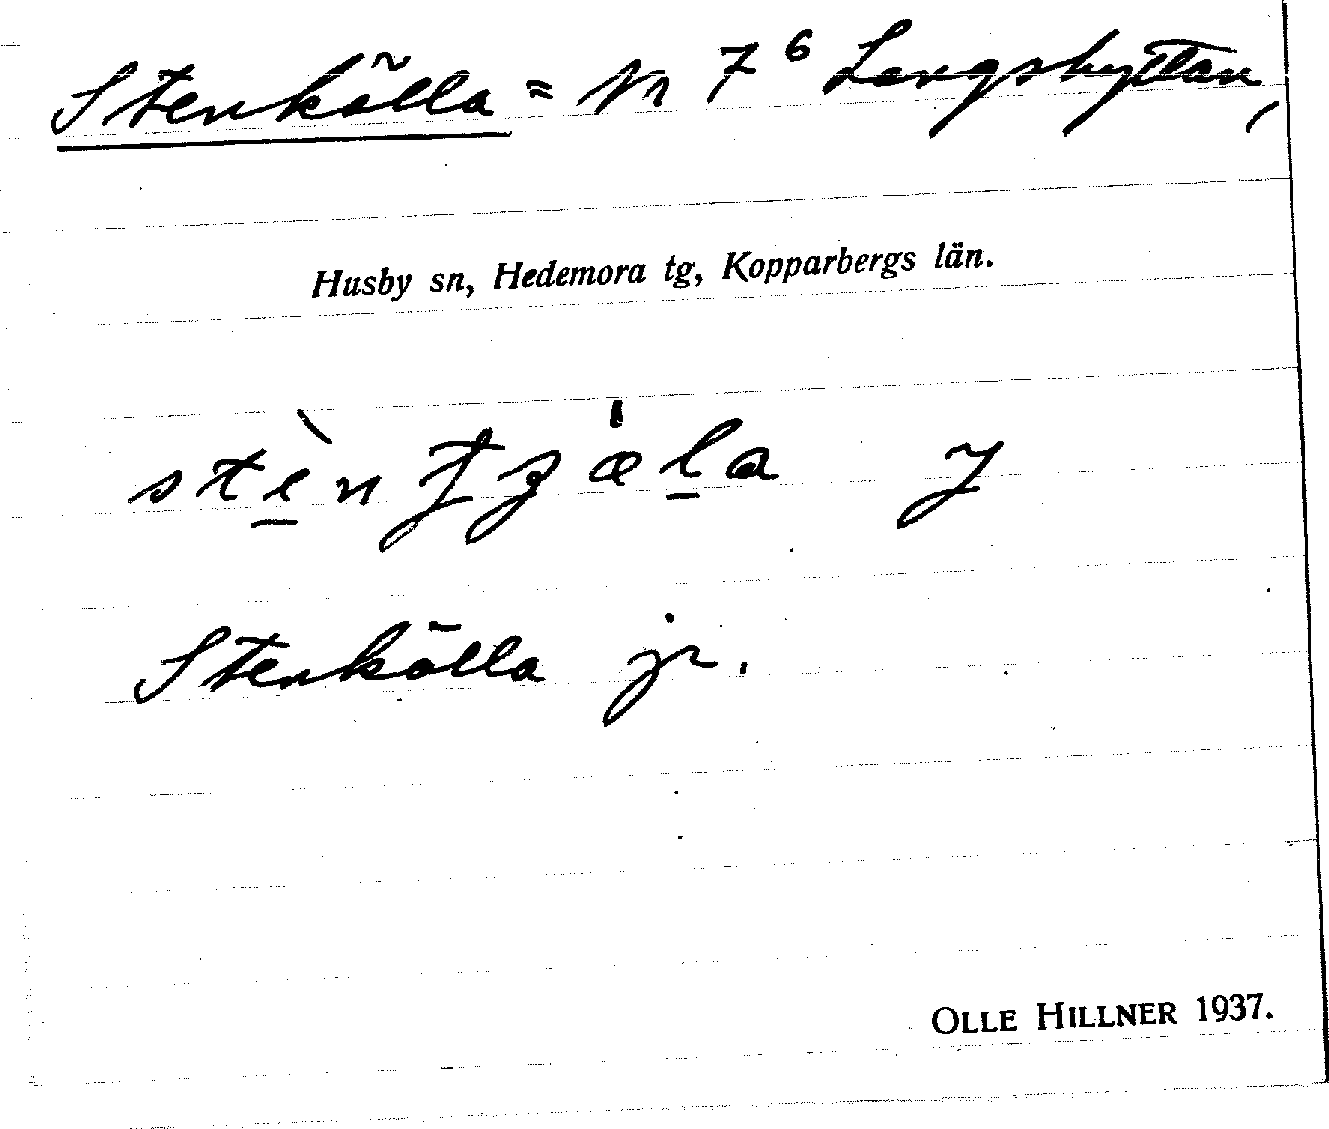 Stenkälla = nr 7⁶ Långshyttan,
Husby sn, Hedemora tg, Kopparbergs län.
Stenkälla jr.
OLLE HILLNER 1937.